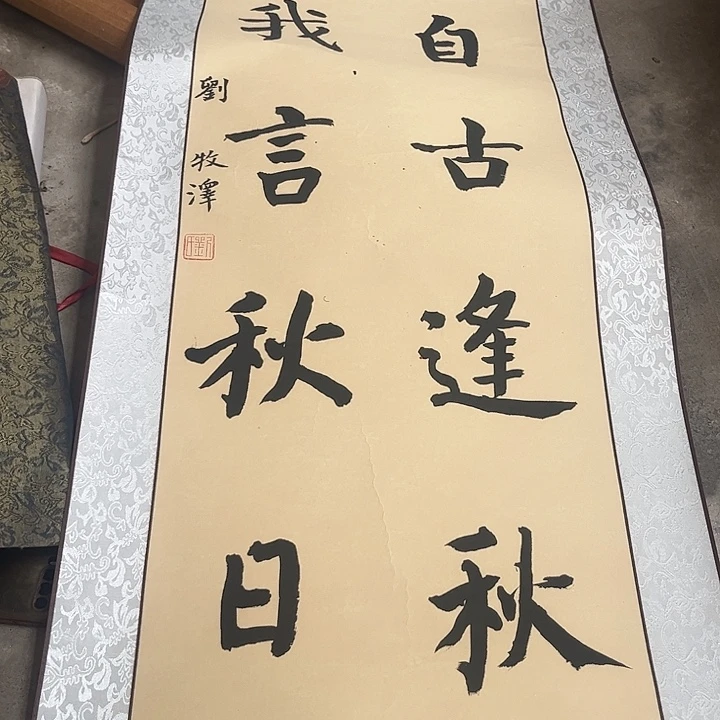 自古逢秋
我言秋日
劉牧澤